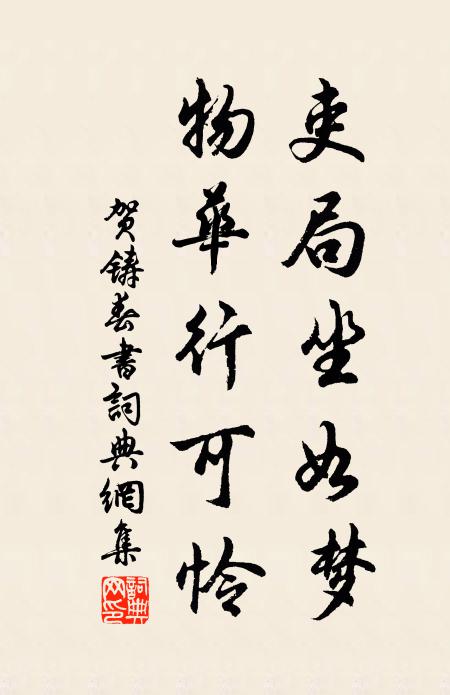 吏局坐如梦
物華行可怜
贺鑄春書詞典網集
詞典网印